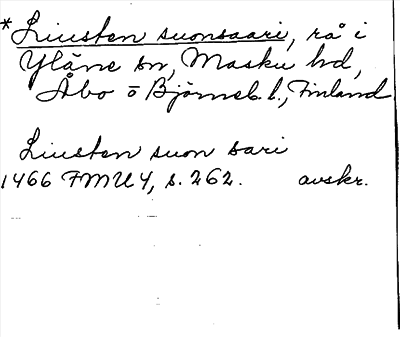 *Liusten suonsaari, rå i
Yläne sn, Masku hd,
Åbo o Björneb. l., Finland
Liusten suon sari
1466 FMU 4, s. 262. avskr.